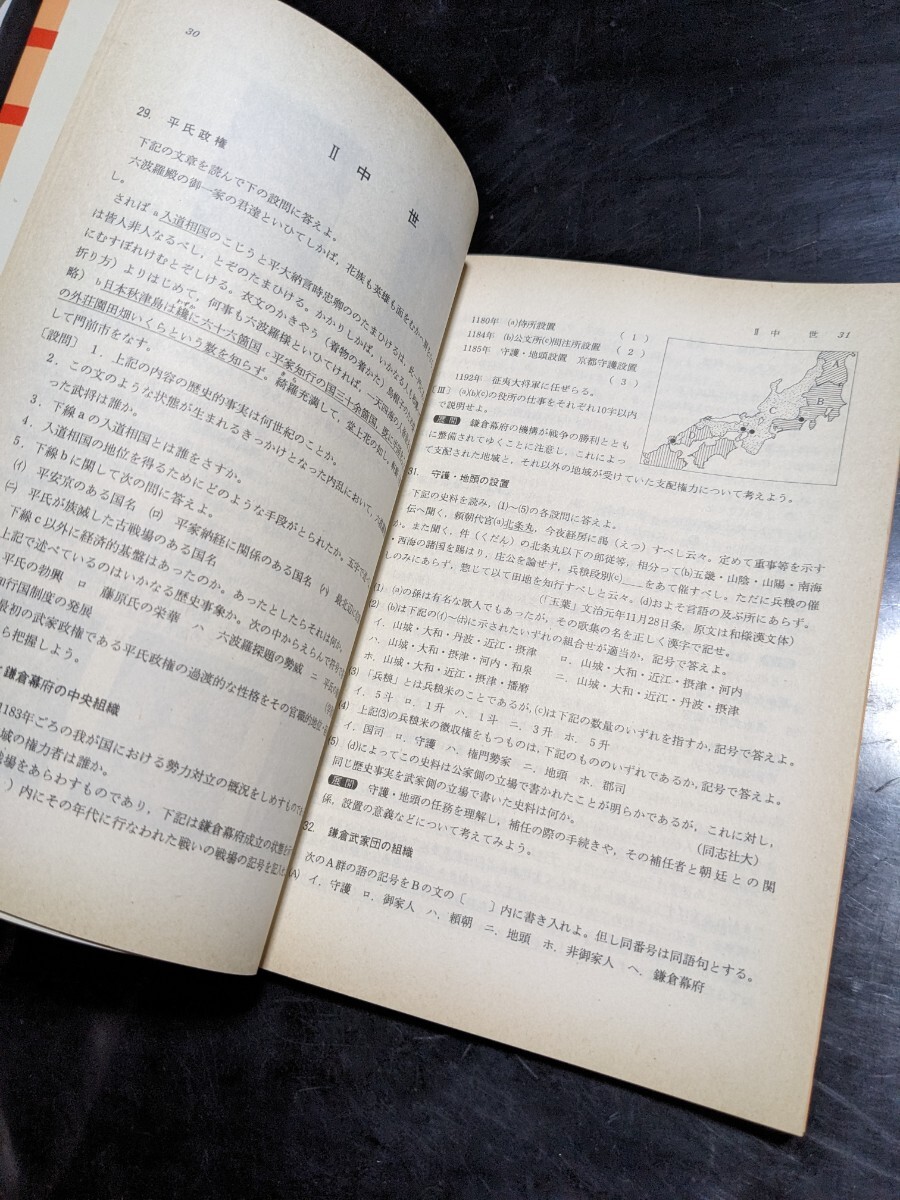 30
II 中 世
29. 平氏政権
下記の文章を読んで下の設問に答えよ。
六波羅殿の御一家の君達といひてしかば，花族も英雄も面をむかへ
し。
されば a入道相国のこじうと平大納言時忠卿ののたまひけるは，
は皆人非人なるべし，とぞのたまひける。かかりしかば，いかなる
にむすぼれけむとぞしける。衣文のかきやう（着物の着かた）
折り方）よりはじめて，何事も六波羅様といひてければ，一天四海の
略）b日本秋津島は纔に六十六箇国 c平家知行の国三十余箇国，既に
の外荘園田畑いくらという数を知らず。綺羅充満して，堂上花の如し，
して門前市をなす。
〔設問〕 1. 上記の内容の歴史的事実は何世紀のことか。
2. この文のような状態が生まれるきっかけとなった内乱において，
った武将は誰か。
3. 下線aの入道相国とは誰をさすか。
4. 入道相国の地位を得るためにどのような手段がとられたか。五字で
5. 下線bに関して次の問に答えよ。
(イ) 平安京のある国名 (ロ) 平家納経に関係のある国名 (ハ)
(ニ) 平氏が族滅した古戦場のある国名
下線c以外に経済的基盤はあったのか。あったとしたらそれは何か。
上記で述べているのはいかなる歴史事象か。次の中からえらんで符号で
平氏の勃興 ロ 藤原氏の栄華 ハ 六波羅探題の勢威 ニ
知行国制度の発展
最初の武家政権である平氏政権の過渡的な性格をその官職的地位
ら把握しよう。
鎌倉幕府の中央組織
1183年ごろの我が国における勢力対立の概況をしめすもので
域の権力者は誰か。
戦場をあらわすものであり，下記は鎌倉幕府成立の状態を
）内にその年代に行なわれた戦いの戦場の記号を記入
II 中 世 31
1180年 (a)侍所設置 （ 1 ）
1184年 (b)公文所(c)問注所設置 （ 2 ）
1185年 守護・地頭設置 京都守護設置
（ 3 ）
1192年 征夷大将軍に任ぜらる。
〔III〕 (a)(b)(c)の役所の仕事をそれぞれ10字以内
で説明せよ。
展問 鎌倉幕府の機構が戦争の勝利ととも
に整備されてゆくことに注意し，これによっ
て支配された地域と，それ以外の地域が受けていた支配権力について考えよう。
B
C
31. 守護・地頭の設置
下記の史料を読み，(1)〜(5)の各設問に答えよ。
伝へ聞く，頼朝代官(a)北条丸，今夜経房に謁（えつ）すべし云々。定めて重事等を示す
か。また聞く，件（くだん）の北条丸以下の郎従等，相分って(b)五畿・山陰・山陽・南海
・西海の諸国を賜はり，庄公を論ぜず，兵粮段別(c)＿＿をあて催すべし。ただに兵粮の催
しのみにあらず，惣じて以て田地を知行すべしと云々。(d)およそ言語の及ぶ所にあらず。
（「玉葉」文治元年11月28日条，原文は和様漢文体）
(1) (a)の係は有名な歌人でもあったが，その歌集の名を正しく漢字で記せ。
(2) (b)は下記の(イ)〜(ホ)に示されたいずれの組合せが適当か，記号で答えよ。
イ．山城・大和・丹波・近江・摂津 ロ．山城・大和・近江・摂津・河内
ハ．山城・大和・摂津・河内・和泉 ニ．山城・大和・近江・丹波・摂津
ホ．山城・大和・近江・摂津・播磨
(3) 「兵粮」とは兵粮米のことであるが，(c)は下記の数量のいずれを指すか，記号で答えよ。
イ．5斗 ロ．1升 ハ．1斗 ニ．3升 ホ．5升
(4) 上記(3)の兵粮米の徴収権をもつものは，下記のもののいずれであるか，記号で答えよ。
イ．国司 ロ．守護 ハ．権門勢家 ニ．地頭 ホ．郡司
(5) (d)によってこの史料は公家側の立場で書かれたことが明らかであるが，これに対し，
同じ歴史事実を武家側の立場で書いた史料は何か。 （同志社大）
展問 守護・地頭の任務を理解し，補任の際の手続きや，その補任者と朝廷との関
係，設置の意義などについて考えてみよう。
32. 鎌倉武家団の組織
次のA群の語の記号をBの文の〔 〕内に書き入れよ。但し同番号は同語句とする。
(A) イ．守護 ロ．御家人 ハ．頼朝 ニ．地頭 ホ．非御家人 ヘ．鎌倉幕府